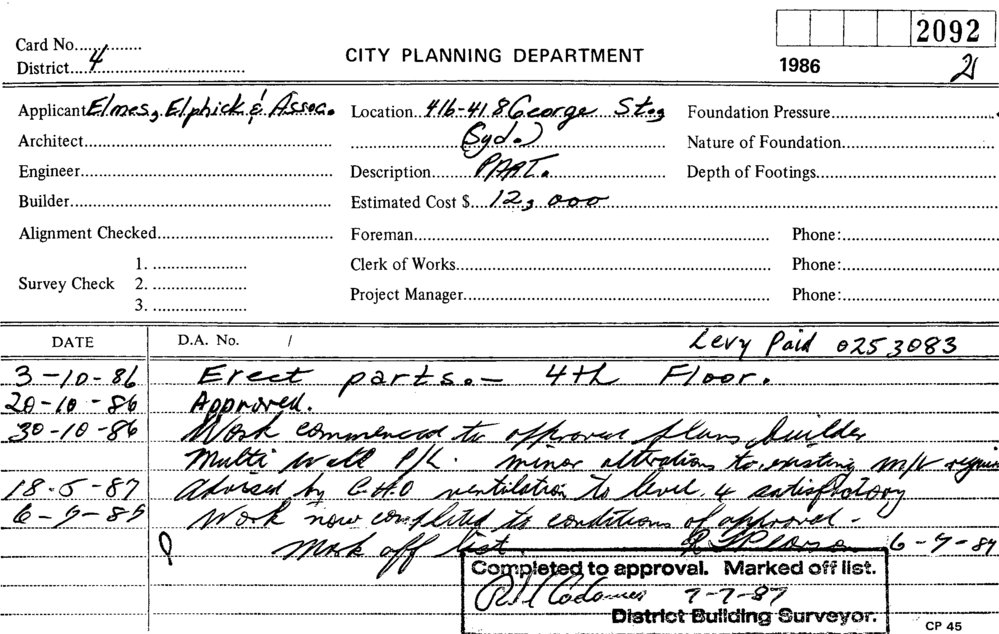 2092
Card No...............
CITY PLANNING DEPARTMENT
District....4
1986 21
Applicant Elmes, Elphick & Assoc. Location...416-418 George St., Foundation Pressure
Architect (Syd.) Nature of Foundation
Engineer Description PART. Depth of Footings
Builder Estimated Cost $ 12,000
Alignment Checked Foreman Phone:
1. Clerk of Works Phone:
Survey Check 2.
3. Project Manager Phone:
DATE D.A. No. / Levy Paid 0253083
3-10-86 Erect parts.- 4th Floor.
20-10-86 Approved.
30-10-86 Work commenced to approved plans, builder
Multi Wall P/L. minor alterations to existing m/v
18-5-87 Advised by C.H.O ventilation to level 4 satisfactory
6-7-87 Work now completed to conditions of approval -
Mark off list. 6-7-87
Completed to approval. Marked off list.
7-7-87
District Building Surveyor.
CP 45